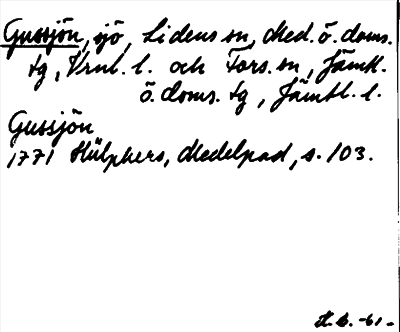 Gussjön, sjö, Lidens sn, Med. ö. doms.
tg, Vrnl. l. och Fors. sn, Jämtl.
ö. doms. tg, Jämtl. l.
Gussjön
1771 Hülphers, Medelpad, s. 103.
-61-